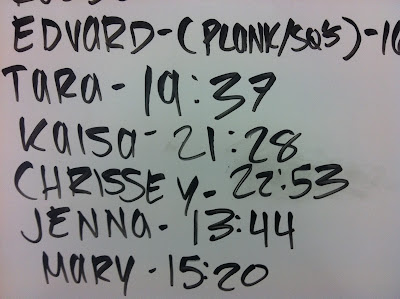 EDVARD-(PLANK/SQ'S)-16
TARA- 19:37
KAISA- 21:28
CHRISSEY- 22:53
JENNA- 13:44
MARY - 15:20